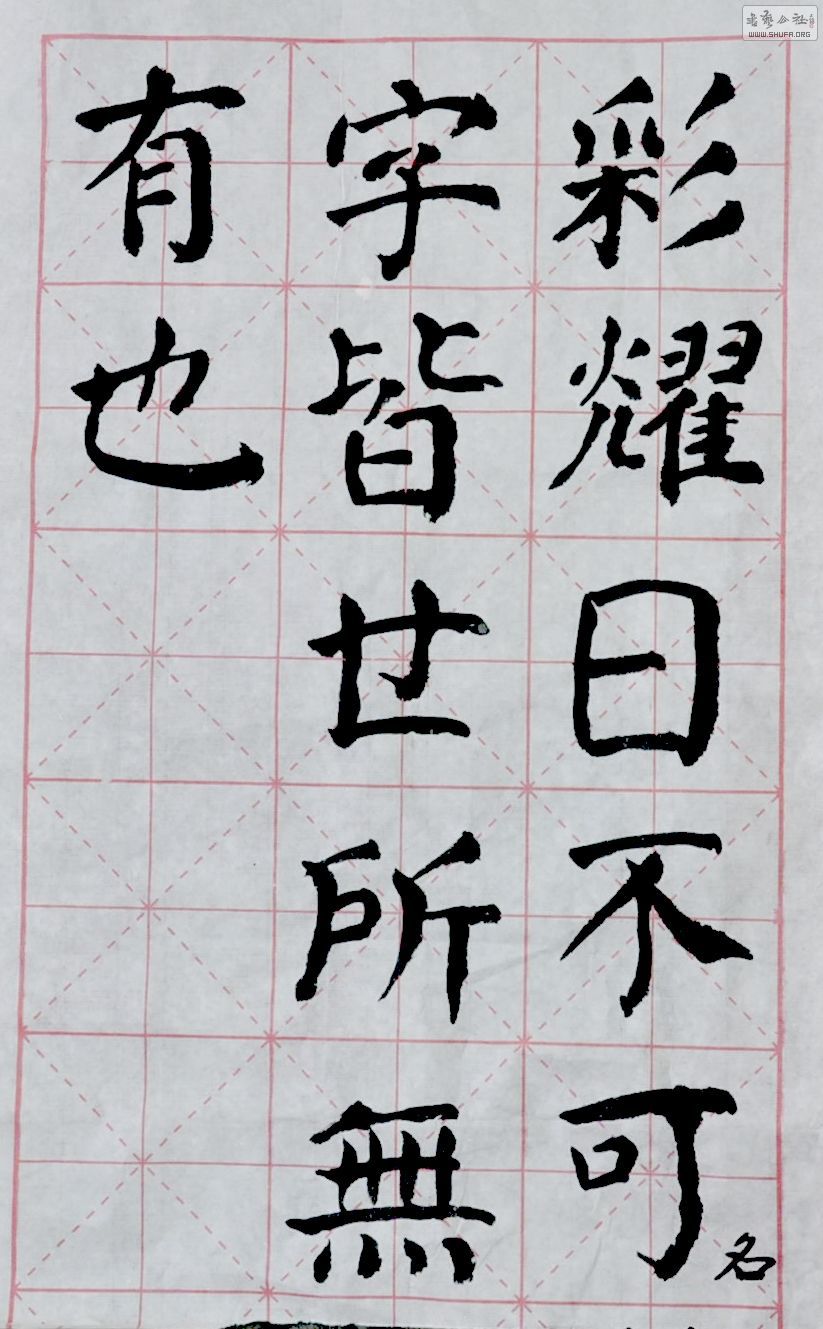 彩耀日不可名
字皆世所無
有也
書藝公社
WWW.SHUFA.ORG